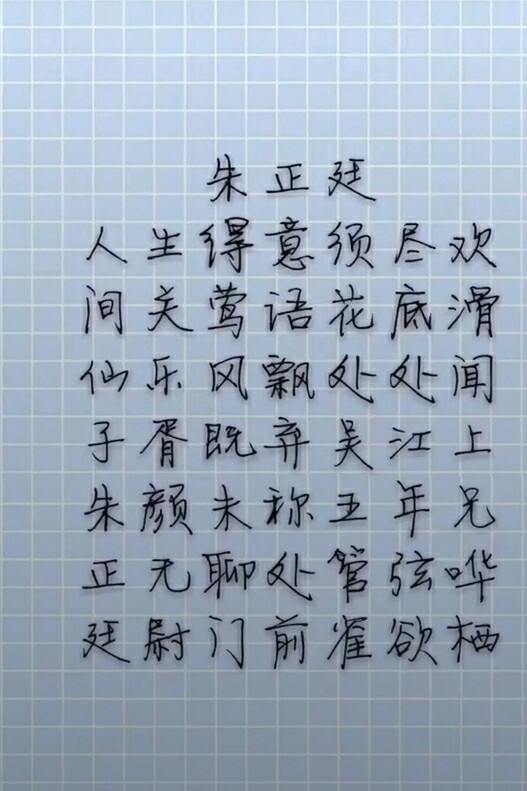 朱正廷
人生得意须尽欢
间关莺语花底滑
仙乐风飘处处闻
子胥既弃吴江上
朱颜未称五年兄
正无聊处管弦哗
廷尉门前雀欲栖